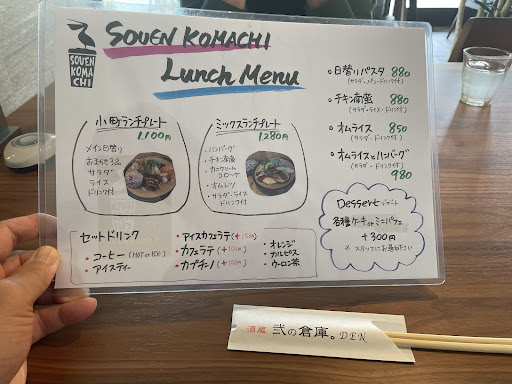 SOUEN
KOMA
CHI
SOUEN KOMACHI
Lunch Menu
小町ランチプレート
1,100円
メイン日替り
おまかせ3品
サラダ
ライス
ドリンク付
ミックスランチプレート
1,280円
・ハンバーグ
・チキン南蛮
・カニクリーム
コロッケ
・オムレツ
サラダ・ライス
ドリンク付
日替りパスタ 880
(サラダ・パン・ドリンク付)
チキン南蛮 880
(サラダ・ライス・ドリンク付)
オムライス 850
(サラダ・ドリンク付)
オムライスとハンバーグ
(サラダ・ドリンク付) 980
Dessert
各種ケーキorミニパフェ
+300円
※スタッフにお尋ね下さい
セットドリンク
・コーヒー (HOT or ICE)
・アイスティー
・アイスカフェラテ (+100円)
・カフェラテ (+100円)
・カプチーノ (+100円)
・オレンジ
・カルピス
・ウーロン茶
酒蔵 弐の倉庫。DEN